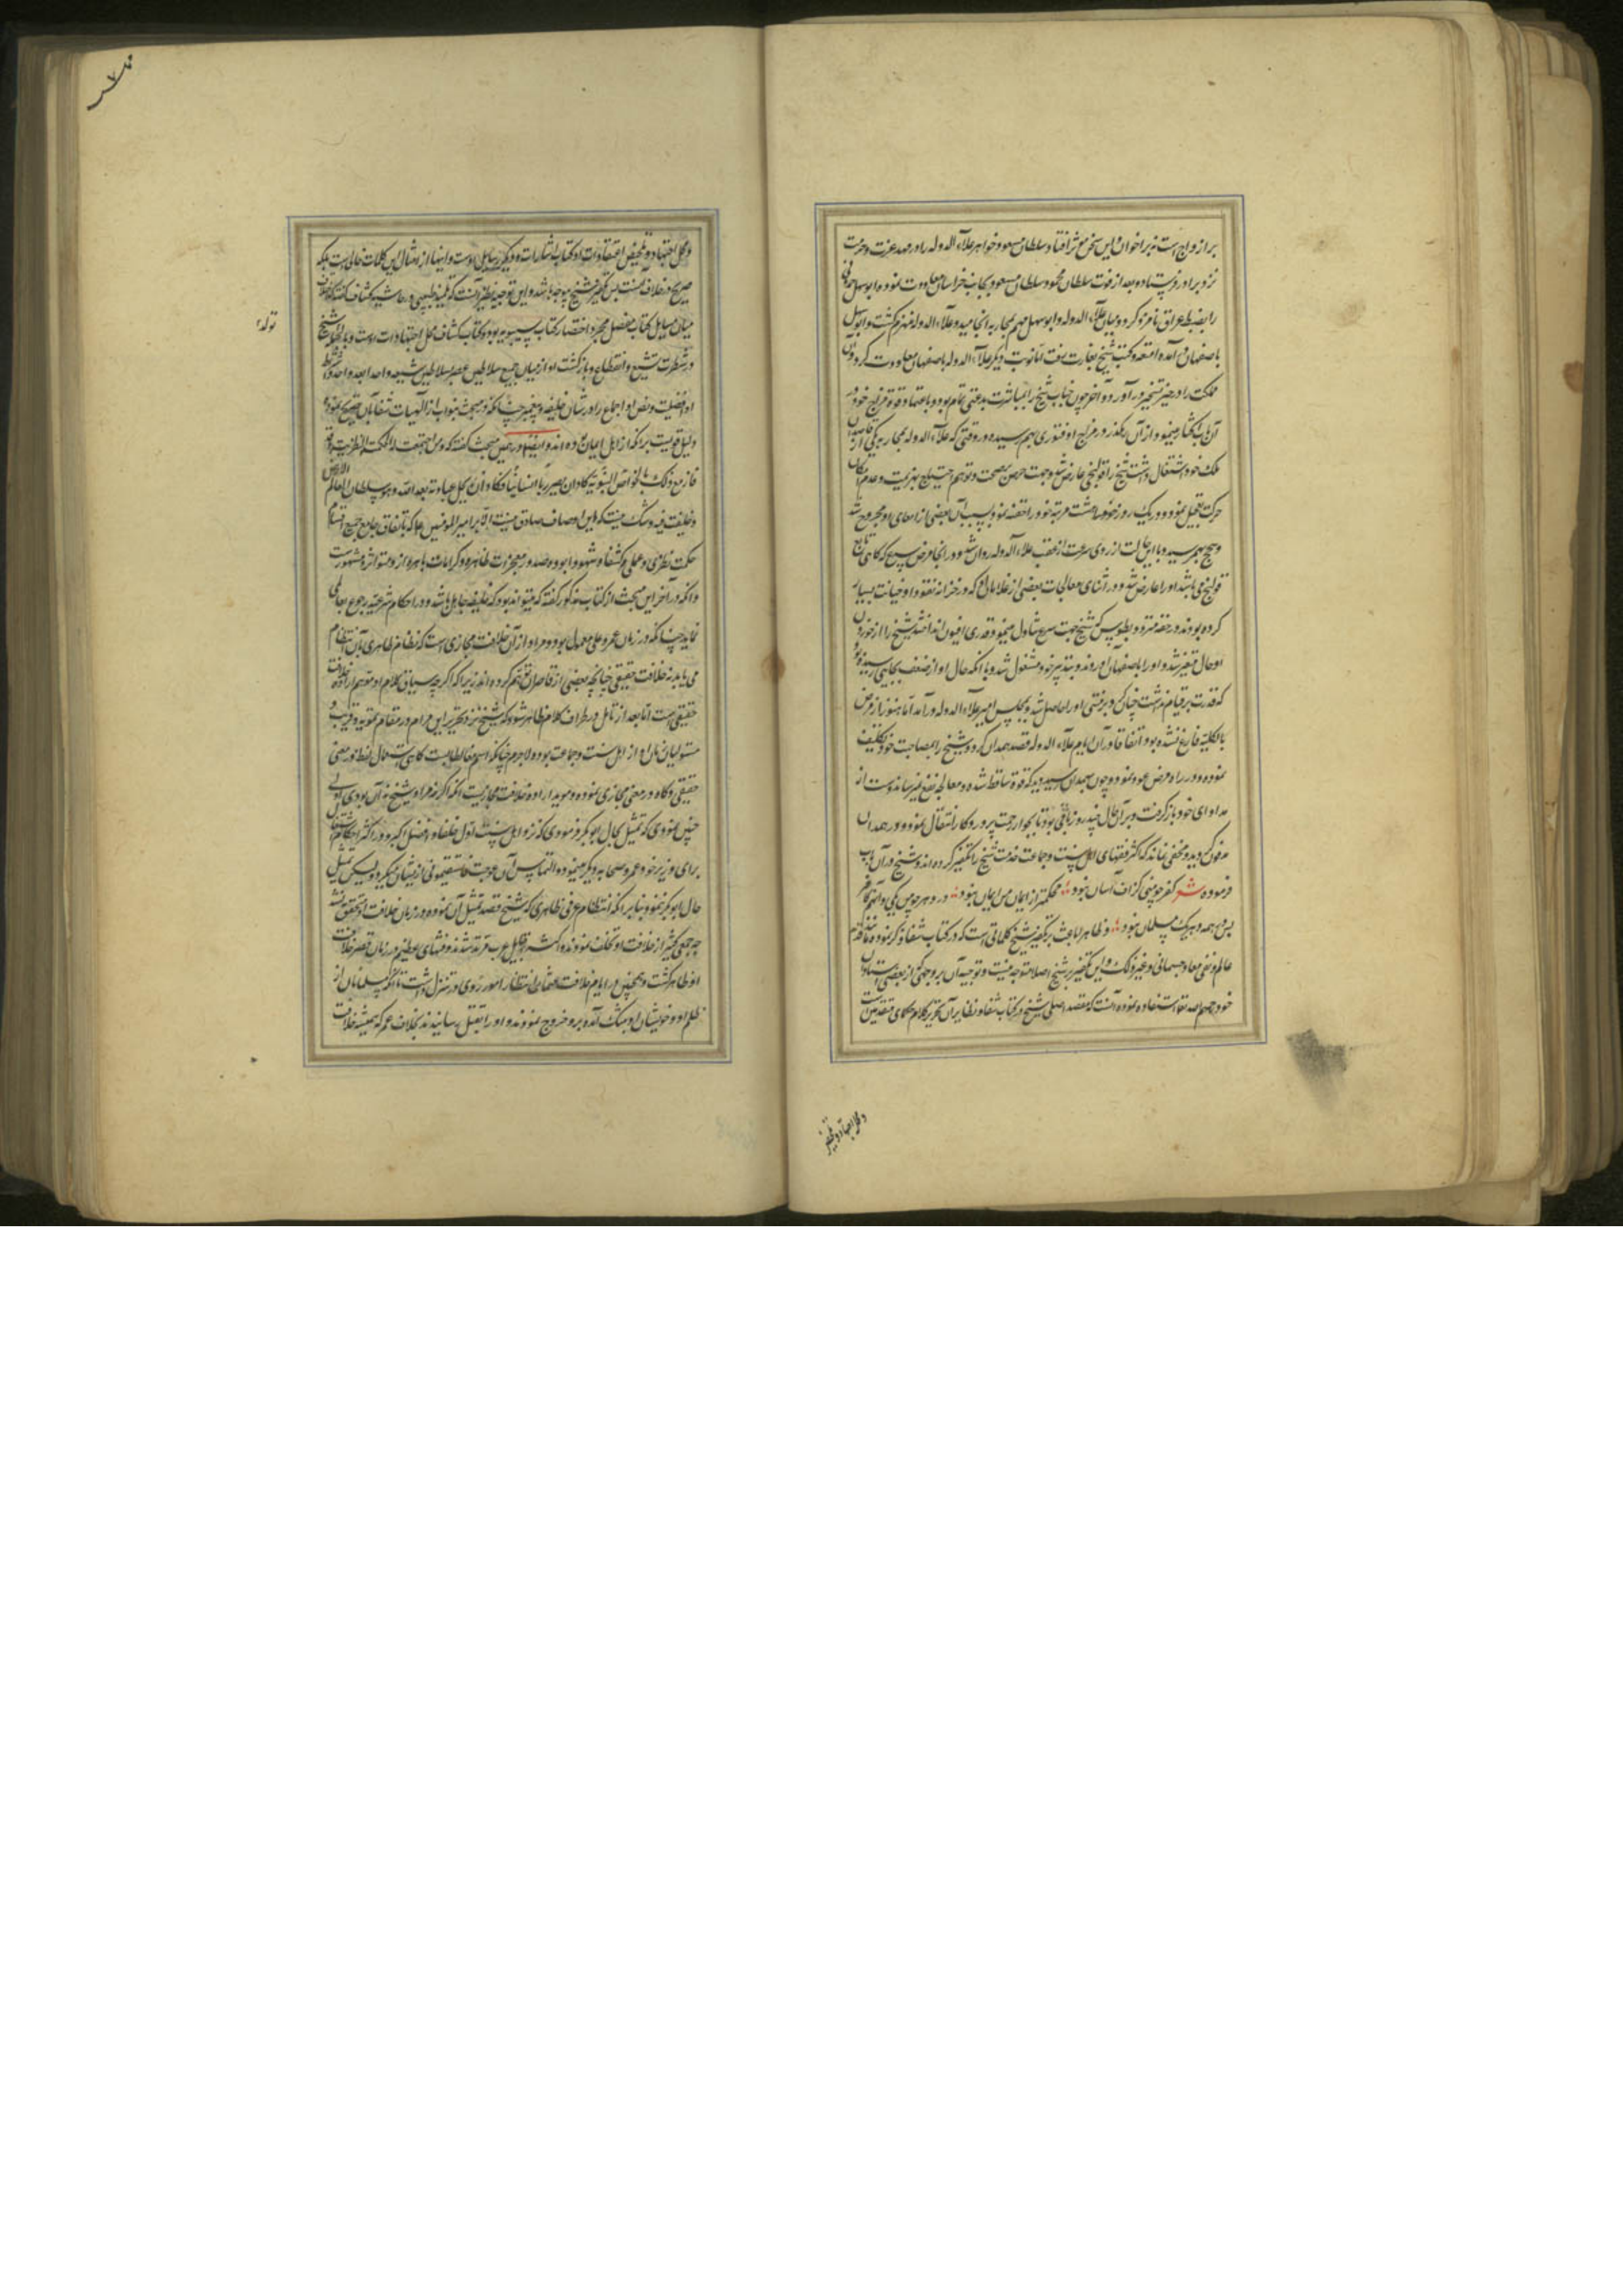 بر ازواج است نه بر اخوان این سخن موثر افتاد و سلطان مسعود خواهر علاء الدوله را در مهد عزت و حرمت
نزد برادر فرستاد و بعد از فوت سلطان محمود سلطان مسعود بجانب خراسان معاودت نموده ابو سهل حمدونی
را بضبط عراق نامزد کرد و میان علاء الدوله و ابو سهل مهم بمحاربه انجامید و علاء الدوله منهزم گشت و ابو سهل
باصفهان آمده امتعه و کتب شیخ بغارت رفت اما نوبت دیگر علاء الدوله باصفهان معاودت کرد و آن
مملکت را در حیز تسخیر درآورد و آخر چون جناب شیخ را بمباشرت رغبتی تمام بود و باعتماد قوة مزاج خود در
آن باب اکثار مینمود از آن رهگذر در مزاج او فتوری بهم رسیده در وقتی که علاء الدوله بمحاربه یکی از قاصدان
ملک خود اشتغال داشت شیخ را قولنجی عارض شد و جهت حرص بر صحت و توهم احتیاج بهزیمت و عدم امکان
حرکت تعجیل نمود و در یک روز خود را هشت مرتبه حقنه نمود و بسبب آن بعضی از امعای او مجروح شد
و سحج بهم رسید و با این حالت از روی سرعت از عقب علاء الدوله روان شد و در آنجا مرض صرع که گاهی تابع
قولنج می باشد او را عارض شد و در اثنای معالجات بعضی از غلامان او که در خزانه نقود او خیانت بسیار
کرده بودند در حقه مثرودیطوس که شیخ جهت صرع تناول مینمود قدری افیون انداختند شیخ را از خوردن
او حال متغیر شد و او را باصفهان آوردند و بتدبیر خود مشغول شد و با آنکه حال او از ضعف بجایی رسیده بود
که قدرت بر قیام نداشت چنان کرد برفتنی او را حاصل شد و بمجلس امیر علاء الدوله درآمد اما هنوز از مرض
بالکلیه فارغ نشده بود اتفاقا در آن ایام علاء الدوله قصد همدان کرد و شیخ را بمصاحبت خود تکلیف
نموده و در راه مرض عود نمود و چون بهمدان رسید دید که قوة ساقط شده و معالجه نفع نمیرساند دست از
مداوای خود باز گرفت و بر آن حال چند روز باقی بود تا بجوار رحمت پروردگار انتقال نمود و در همدان
مدفون گردید و مخفی نماند که اکثر فقهای اهل سنت و جماعت خدمت شیخ را تکفیر کرده اند و شیخ در آن باب
فرموده شعر کفر چو منی گزاف آسان نبود محکمتر از ایمان من ایمان نبود در دهر چو من یکی و آنهم کافر
پس در همه دهر یک مسلمان نبود و ظاهرا باعث بر تکفیر شیخ کلماتی است که در کتاب شفا ذکر نموده مانند قدم
عالم و نفی معاد جسمانی و غیر ذلک و این تکفیر بر شیخ اصلا متوجه نیست و توجیه آن بر وجهی که از بعضی استادان
خود رحمهم الله تعالی استفاده نموده آنست که مقصد اصلی شیخ در کتاب شفا و نظایر آن تحریر کلام حکمای متقدمین است
و محل اجتهاد و تلخیص
و محل اجتهاد و تلخیص اعتقادات او کتاب اشارات و دیگر رسایل اوست و اینها از امثال این کلمات خالی است بلکه
صریح در خلاف آنست پس تکفیر شیخ موجه نباشد و این توجیه نظیر آنست که طیبی در حاشیه کشاف گفته که خلاف
میان مسایل کتاب مفصل مجرد اختصار کتاب سیبویه بود و کتاب کشاف محل اجتهادات اوست و بالجمله شیخ
در فطرت تشیع و انقطاع و بازگشت او از میان جمیع سلاطین عصر بسلاطین شیعه واحدا بعد واحد و شرط
او افضلیت و نص و اجماع را در شان خلیفه پیغمبر چنانکه در مبحث نبوات از الهیات شفا بآن تصریح نموده
دلیل قویست بر آنکه از اهل ایمان بوده اند و ایضا در همین مبحث گفته که و من اجتمعت له الحکمة النظریة و قد
فاز مع ذلک بالخواص النبویة کاد ان یصیر ربا انسانیا و کاد ان یحل عبادته بعد الله و هو سلطان العالم الارضی
و خلیفة فیه و شک نیست که این اوصاف صادق نیست الا بر امیر المومنین علی که باتفاق جامع جمیع اقسام
حکمت نظری و عملی و کشف و شهود بوده و صدور معجزات ظاهره و کرامات باهره از و متواتر و مشهور است
و آنکه در آخر این مبحث از کتاب مذکور گفته که میتواند بود که خلیفه جاهل باشد و در احکام شرعیه رجوع بعالمی
نماید چنانکه در زمان عمر و علی معمول بود و مراد از آن خلافت مجازی است که نظام ظاهری بآن انتظام
می یابد نه خلافت حقیقی چنانچه بعضی از قاصران توهم کرده اند زیرا که اگر چه سیاق کلام او موهم اراده خلافت
حقیقی است اما بعد از تامل در اطراف کلام ظاهر شود که شیخ نزد تحریر این مرام در مقام تمویه و فریب
مستولیان زمان او از اهل سنت و جماعت بوده لاجرم چنانکه اسم مغالطه است گاهی استعمال لفظ در معنی
حقیقی و گاه در معنی مجازی نموده و موید اراده خلافت مجازیست آنکه اگر نه مراد شیخ نه آن بودی اولی
چنین نمودی که تمثیل بحال ابو بکر فرمودی که نزد اهل سنت اول خلفا و افضل است و در اکثر احکام
برای وزیر خود عمر و صحابه دیگر مینموده و التماس آن موجب فاستقیمونی از ایشان میکرد و لیکن تمثیل
حال ابو بکر ننمود بنابر آنکه انتظام عرفی ظاهری که شیخ قصد تمثیل آن نموده در زمان خلافت او تحقق نشد
چه جمعی کثیر از خلافت او تخلف نمودند و اکثر قبایل عرب مرتد شدند و فتنهای عظیم در زمان قصر خلافت
او ظاهر گشت و همچنین در ایام خلافت عثمان انتظام امور روی در تنزل داشت تا آنکه مسلمانان از
ظلم او و خویشان او بتنگ آمده برو خروج نمودند و او را بقتل رسانیدند بخلاف عمر که همیشه خلافت